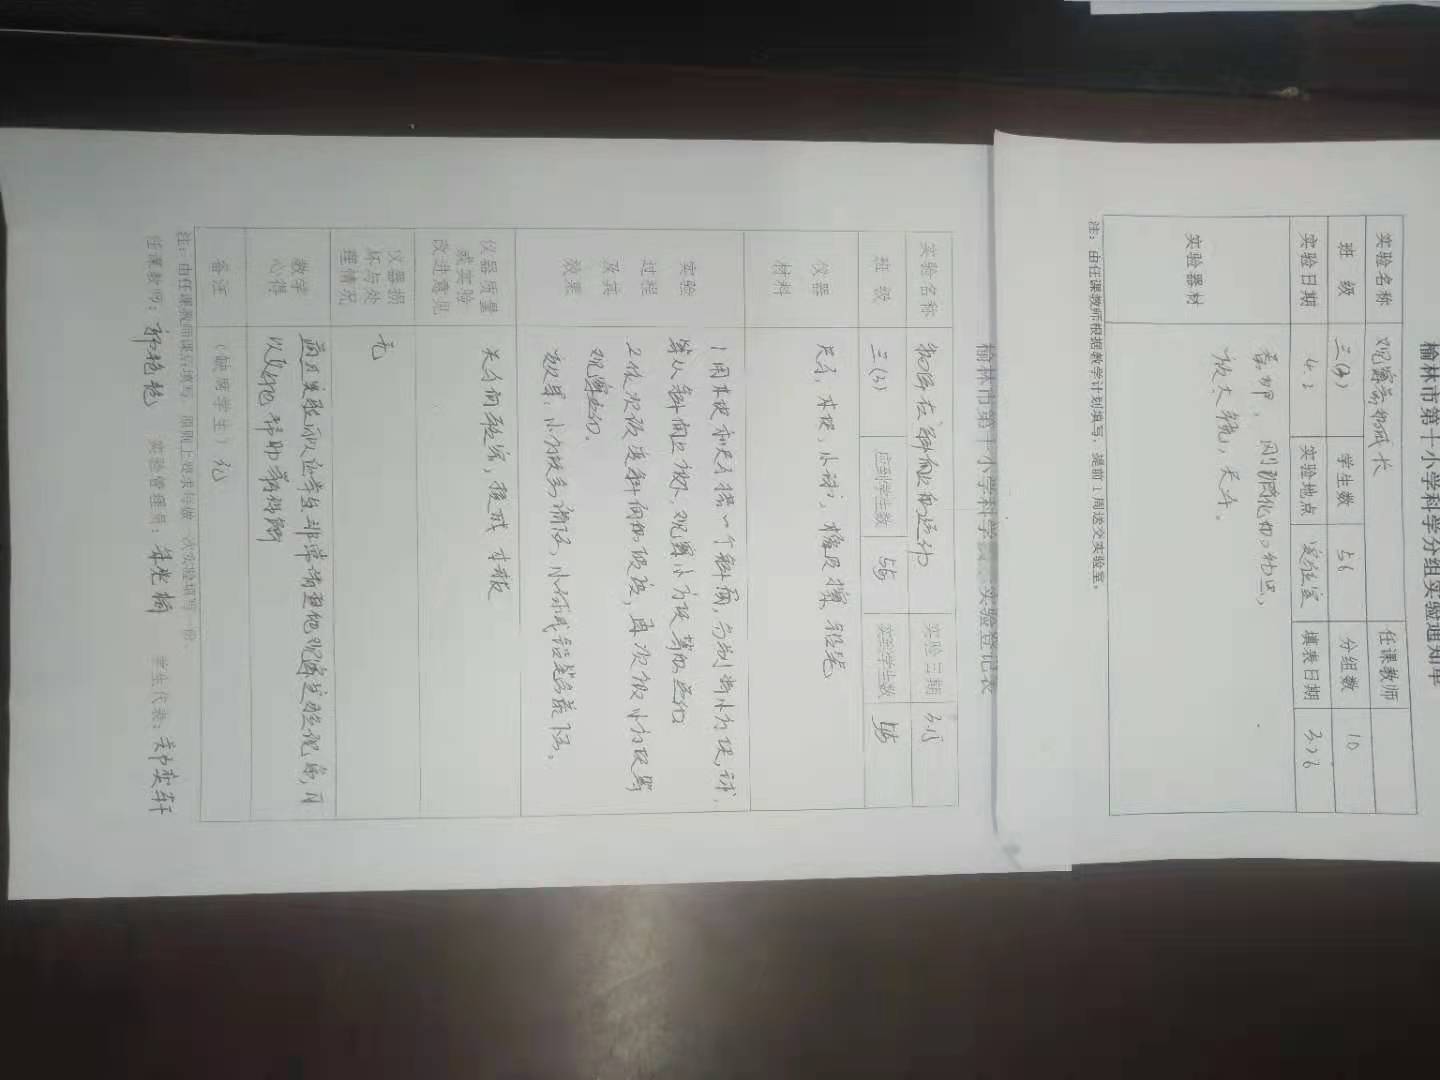 榆林市第十小学科学分组实验通知单
实验名称 观察蚕的成长 任课教师
班 级 三(3) 学生数 56 分组数 10
实验日期 4.2 实验地点 实验室 填表日期 3.26
实验器材
蚕卵、刚孵化的幼蚕,
放大镜,尺子。
注:由任课教师根据教学计划填写,提前1周送交实验室。
榆林市第十小学科学 实验登记表
实验名称 物体在斜面上的运动 实验日期 3.15
班 级 三(3) 应到学生数 56 实到学生数 56
仪器
材料
尺子,木块,小球,橡皮擦
实验
过程
及其
效果
1 用木块和尺子搭一个斜面,分别将小方块,球,
等从斜面上放下,观察小方块等的运动
2 依次改变斜面的坡度,再次放小方块等
观察运动。
效果:小方块
仪器质量
或实验
改进意见
尺子有较窄,换成木板
仪器损
坏与处
理情况
无
教学
心得
通过实验可以让学生非常清楚地观察实验现象,可
以更好地帮助
备注
(缺席学生)无
注:由任课教师课后填写,原则上要求每做一次实验填写一份。
任课教师:郭艳艳 实验管理员: 学生代表: